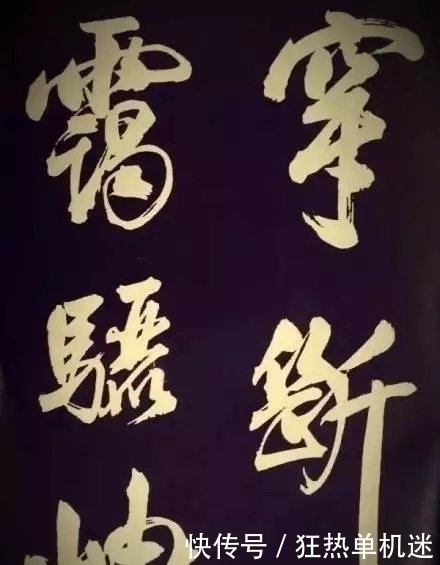 穿斷
靄驪
快传号 / 狂热单机迷